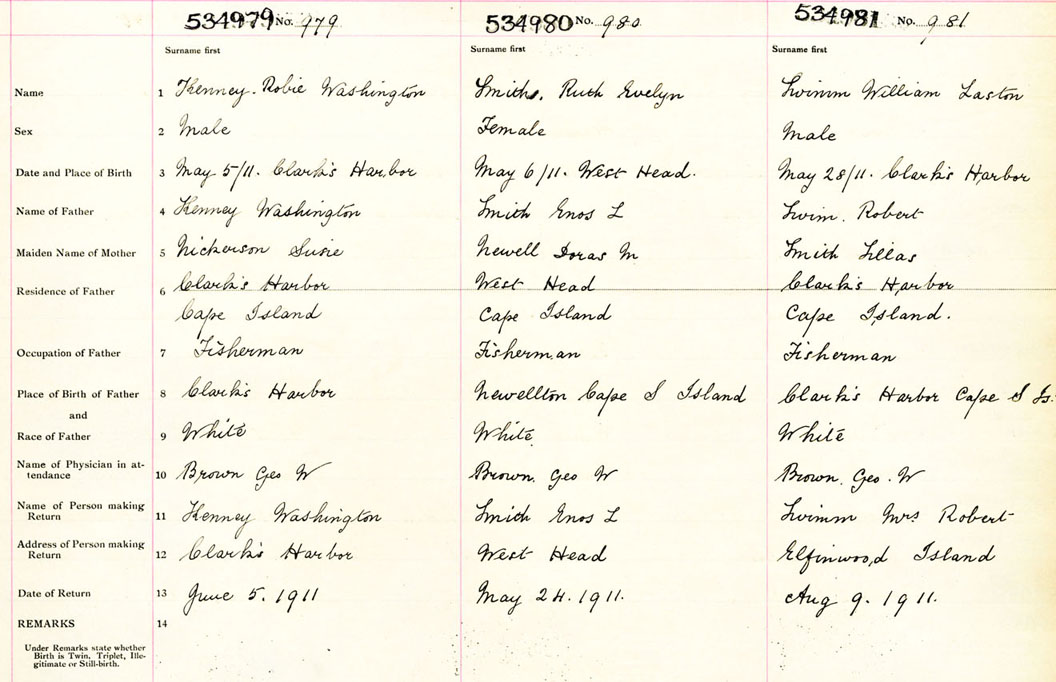 534979 No. 979 534980 No. 980 534981 No. 981
Surname first Surname first Surname first
Name 1 Kenney. Robie Washington Smith. Ruth Evelyn Swimm William Laston
Sex 2 Male Female Male
Date and Place of Birth 3 May 5/11. Clark's Harbor May 6/11. West Head. May 28/11. Clark's Harbor
Name of Father 4 Kenney Washington Smith Enos L Swim. Robert
Maiden Name of Mother 5 Nickerson Susie Newell Doras M Smith Lillas
Residence of Father 6 Clark's Harbor West Head Clark's Harbor
Cape Island Cape Island Cape Island.
Occupation of Father 7 Fisherman Fisherman Fisherman
Place of Birth of Father 8 Clark's Harbor Newellton Cape S Island Clark's Harbor Cape S Is.
and
Race of Father 9 White White White
Name of Physician in at-
tendance 10 Brown Geo W Brown. Geo W Brown. Geo. W
Name of Person making
Return 11 Kenney Washington Smith Enos L Swimm Mrs Robert
Address of Person making
Return 12 Clark's Harbor West Head Island
Date of Return 13 June 5. 1911 May 24. 1911. Aug 9. 1911.
REMARKS 14
Under Remarks state whether
Birth is Twin, Triplet, Ille-
gitimate or Still-birth.